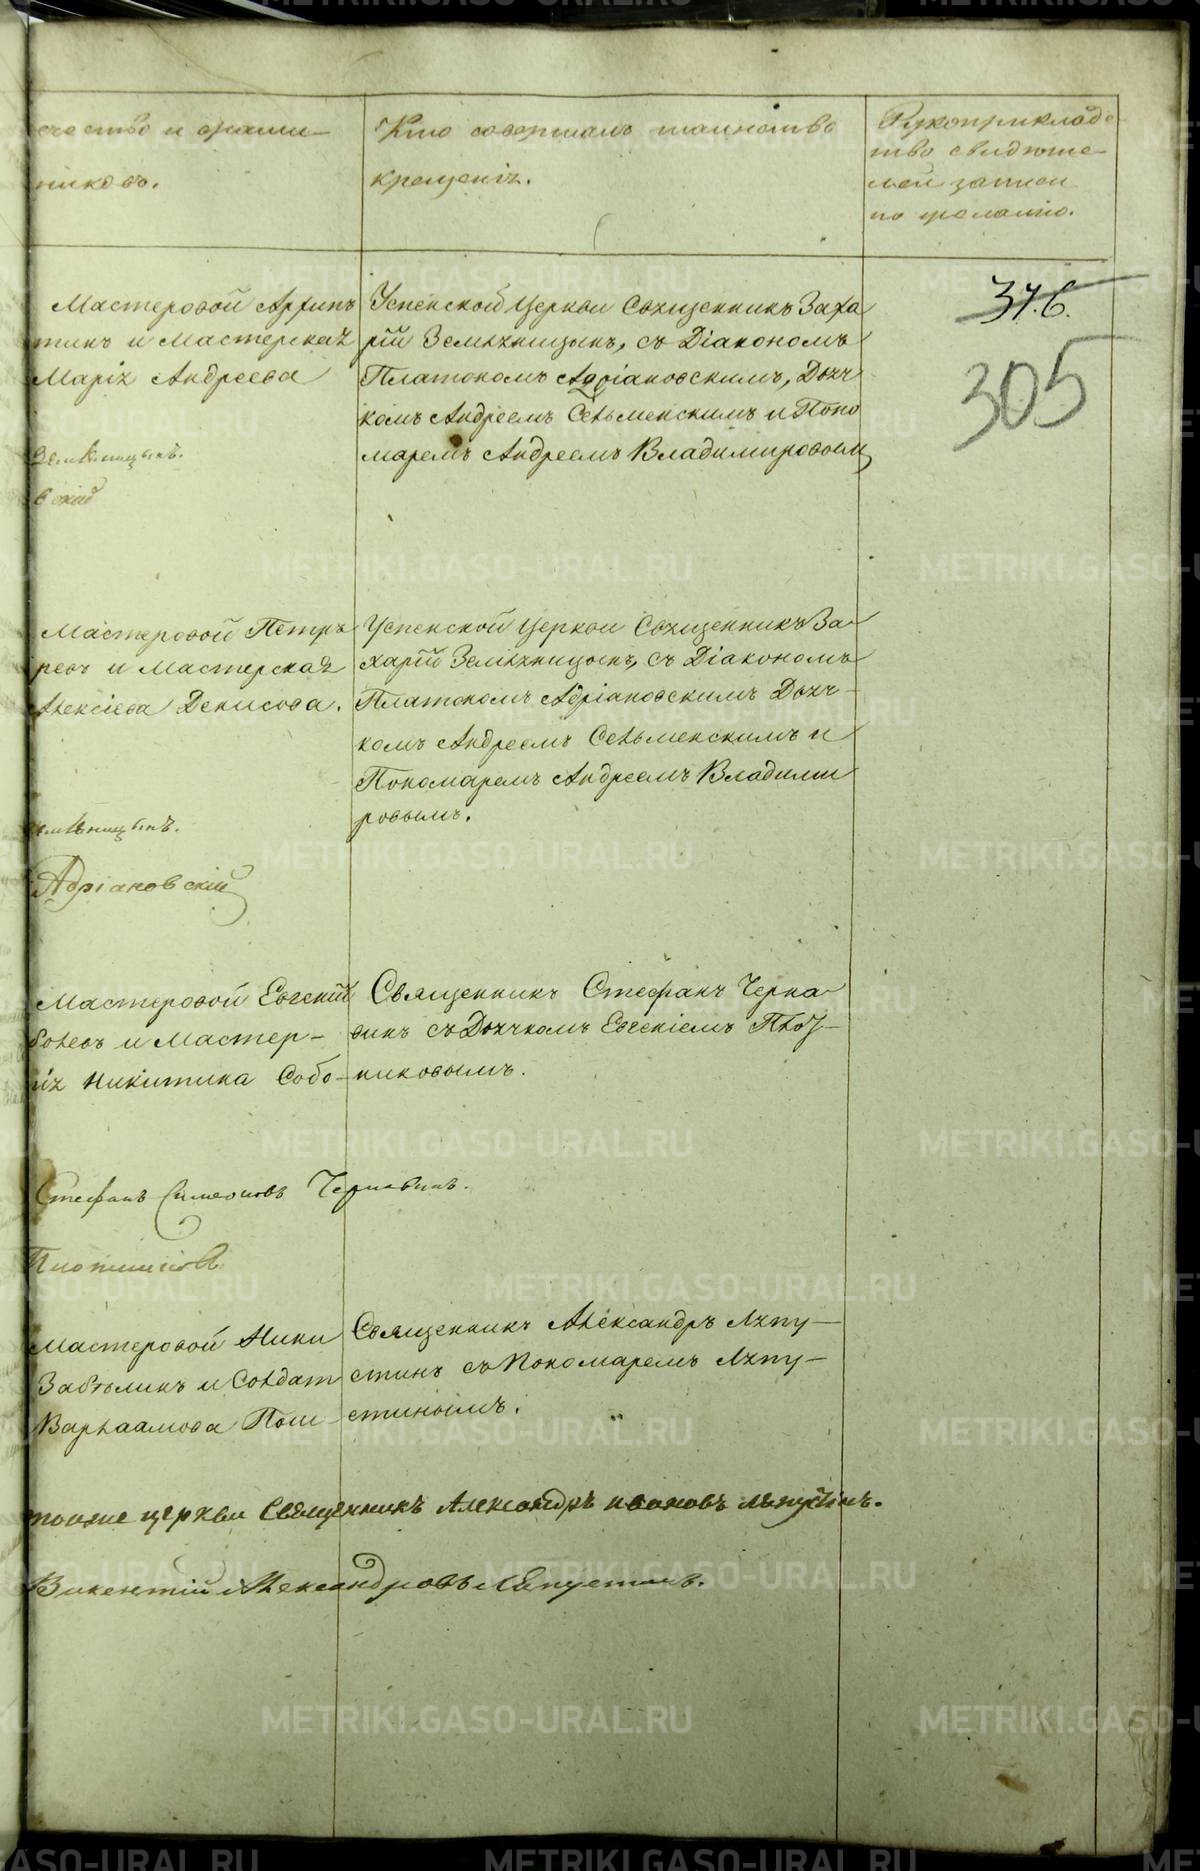 ечество и фами-
никовъ.
Кто совершалъ таинство
крещенія.
Рукоприклад-
ство свидѣте-
лей записи
по желанію.
376.
305
Мастеровой Архипъ
тинъ и Мастерская
Марія Андреева
Успенской Церкви Священникъ Заха
рій Земляницынъ, съ Діакономъ
Платономъ Адріановскимъ, Дьяч
комъ Андреемъ Сельменскимъ и Поно
маремъ Андреемъ Владимировым
Земляницынъ.
вскій
Мастеровой Петръ
ревъ и Мастерская
Алексіева Денисова.
Успенской Церкви Священникъ За-
харій Земляницынъ, съ Діакономъ
Платономъ Адріановскимъ Дьяч-
комъ Андреемъ Сельменскимъ и
Пономаремъ Андреемъ Владими
ровымъ.
емляницынъ.
Адріановскій
Мастеровой Евгеній
болевъ и Мастер-
ія Никитина Собо-
Священникъ Стефанъ Черна
винъ съ Дьячкомъ Евгеніемъ Плот-
никовымъ.
Стефанъ Симеоновъ Чернавинъ.
Плотниковъ
Мастеровой Ники
Забѣлинъ и Солдат
Варлаамова Пош
Священникъ Александръ Ляпу-
стинъ съ Пономаремъ Ляпу-
стинымъ.
тоиже церкви Священникъ Александръ Ивановъ Ляпустинъ.
Викентій Александровъ Ляпустинъ.
METRIKI.GASO-URAL.RU